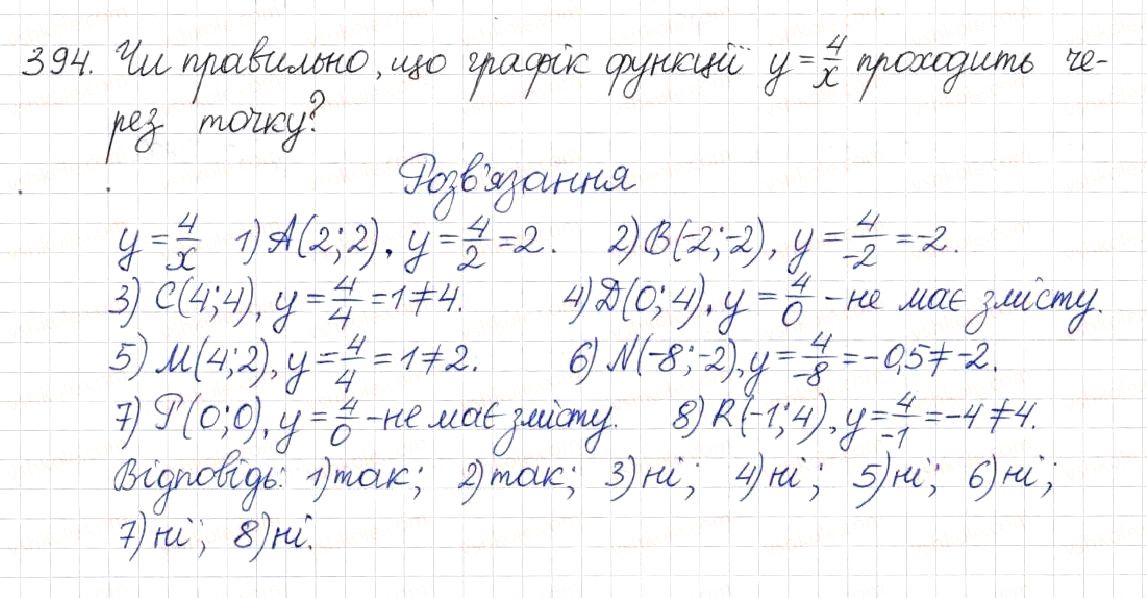 394. Чи правильно, що графік функції y = 4/x проходить че-
рез точку?
Розв'язання
y = 4/x 1) A(2; 2), y = 4/2 = 2. 2) B(-2; -2), y = 4/-2 = -2.
3) C(4; 4), y = 4/4 = 1 ≠ 4. 4) D(0; 4), y = 4/0 - не має змісту.
5) M(4; 2), y = 4/4 = 1 ≠ 2. 6) N(-8; -2), y = 4/-8 = -0,5 ≠ -2.
7) P(0; 0), y = 4/0 - не має змісту. 8) R(-1; 4), y = 4/-1 = -4 ≠ 4.
Відповідь: 1) так; 2) так; 3) ні; 4) ні; 5) ні; 6) ні;
7) ні; 8) ні.